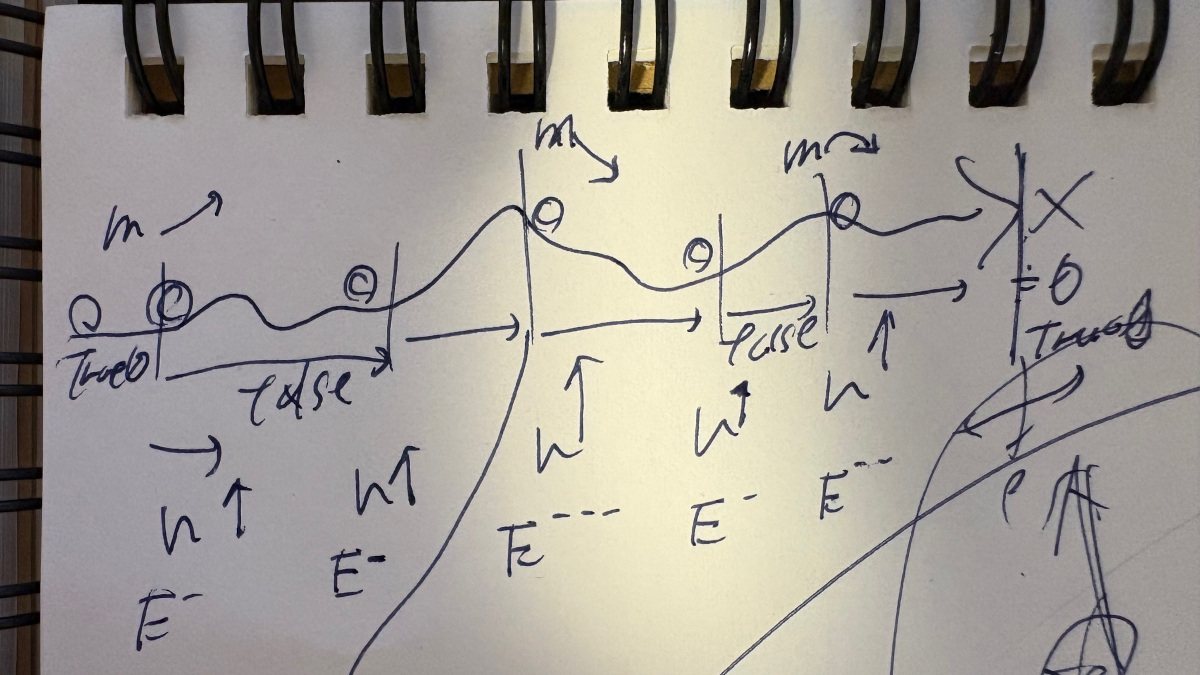 m → m ↘ m
X
= 0
True0 false false True0
→ h ↑ h ↑ h ↑ h ↑ h ↑
E - E - E - - - - E - E - - -